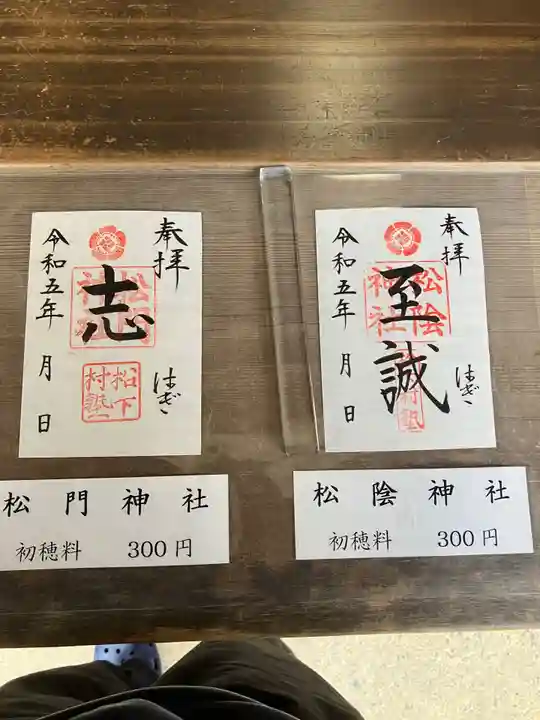 奉拝
志
はぎ
令和五年 月 日
松下
村塾
松門神社
初穂料 300円
奉拝
至誠
はぎ
令和五年 月 日
松陰
神社
村塾
松陰神社
初穂料 300円